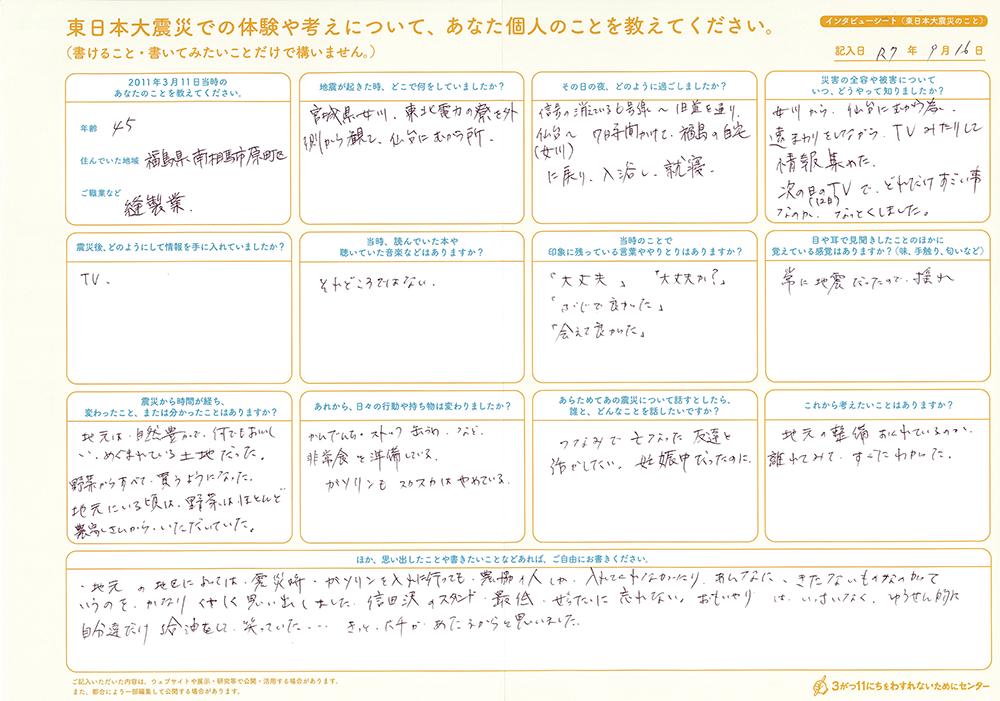 東日本大震災での体験や考えについて、あなた個人のことを教えてください。
(書けること・書いてみたいことだけで構いません。)
インタビューシート(東日本大震災のこと)
記入日 R7 年 9 月 16 日
2011年3月11日当時の
あなたのことを教えてください。
年齢 45
住んでいた地域 福島県南相馬市原町区
ご職業など
縫製業.
地震が起きた時、どこで何をしていましたか?
宮城県女川、東北電力の寮を外
側から観て、仙台にむかう所.
その日の夜、どのように過ごしましたか?
信号の消えている6号線〜旧道を通り、
仙台〜 7時間かけて、福島の自宅
(女川)
に戻り、入浴し、就寝.
災害の全容や被害について
いつ、どうやって知りましたか?
女川から、仙台にむかう為、
遠まわりをしながら、TVみたりして
情報集めた.
次の日のTVで、どれだけすごい事
(12日)
なのか、なっとくしました。
震災後、どのようにして情報を手に入れていましたか?
TV、
当時、読んでいた本や
聴いていた音楽などはありますか?
それどころではない.
当時のことで
印象に残っている言葉ややりとりはありますか?
「大丈夫」 「大丈夫か?」
「ぶじで良かった」
「会えて良かった」
目や耳で見聞きしたことのほかに
覚えている感覚はありますか?(味、手触り、匂いなど)
常に地震だったので、揺れ
震災から時間が経ち、
変わったこと、または分かったことはありますか?
地元は、自然豊かで、何でもおいし
い、めぐまれている土地だった。
野菜からすべて、買うようになった.
地元にいる頃は、野菜はほとんど
農家さんから、いただいていた。
あれから、日々の行動や持ち物は変わりましたか?
かんでんち・ストック 缶づめ、など.
非常食を準備している.
ガソリンも スカスカはやめている.
あらためてあの震災について話すとしたら、
誰と、どんなことを話したいですか?
つなみで亡なった友達と
話がしたい。妊娠中だったのに.
これから考えたいことはありますか?
地元の整備おくれているのか、
離れてみて、すごくわかった.
ほか、思い出したことや書きたいことなどあれば、ご自由にお書きください。
・地元の地区によっては、震災時・ガソリンを入れに行っても、農協の人しか、入れてくれなかったり、あんなに、きたないものなのかって
いうのを、かなりくやしく思い出しました.信田沢のスタンド・最低・ぜったいに忘れない。おもいやりは、いっさいなく、ゆうせん的に
自分達だけ給油をして、笑っていた… きっと、バチが、あたるからと思いました.
ご記入いただいた内容は、ウェブサイトや展示・研究等で公開・活用する場合があります。
また、都合により一部編集して公開する場合があります。
3がつ11にちをわすれないためにセンター